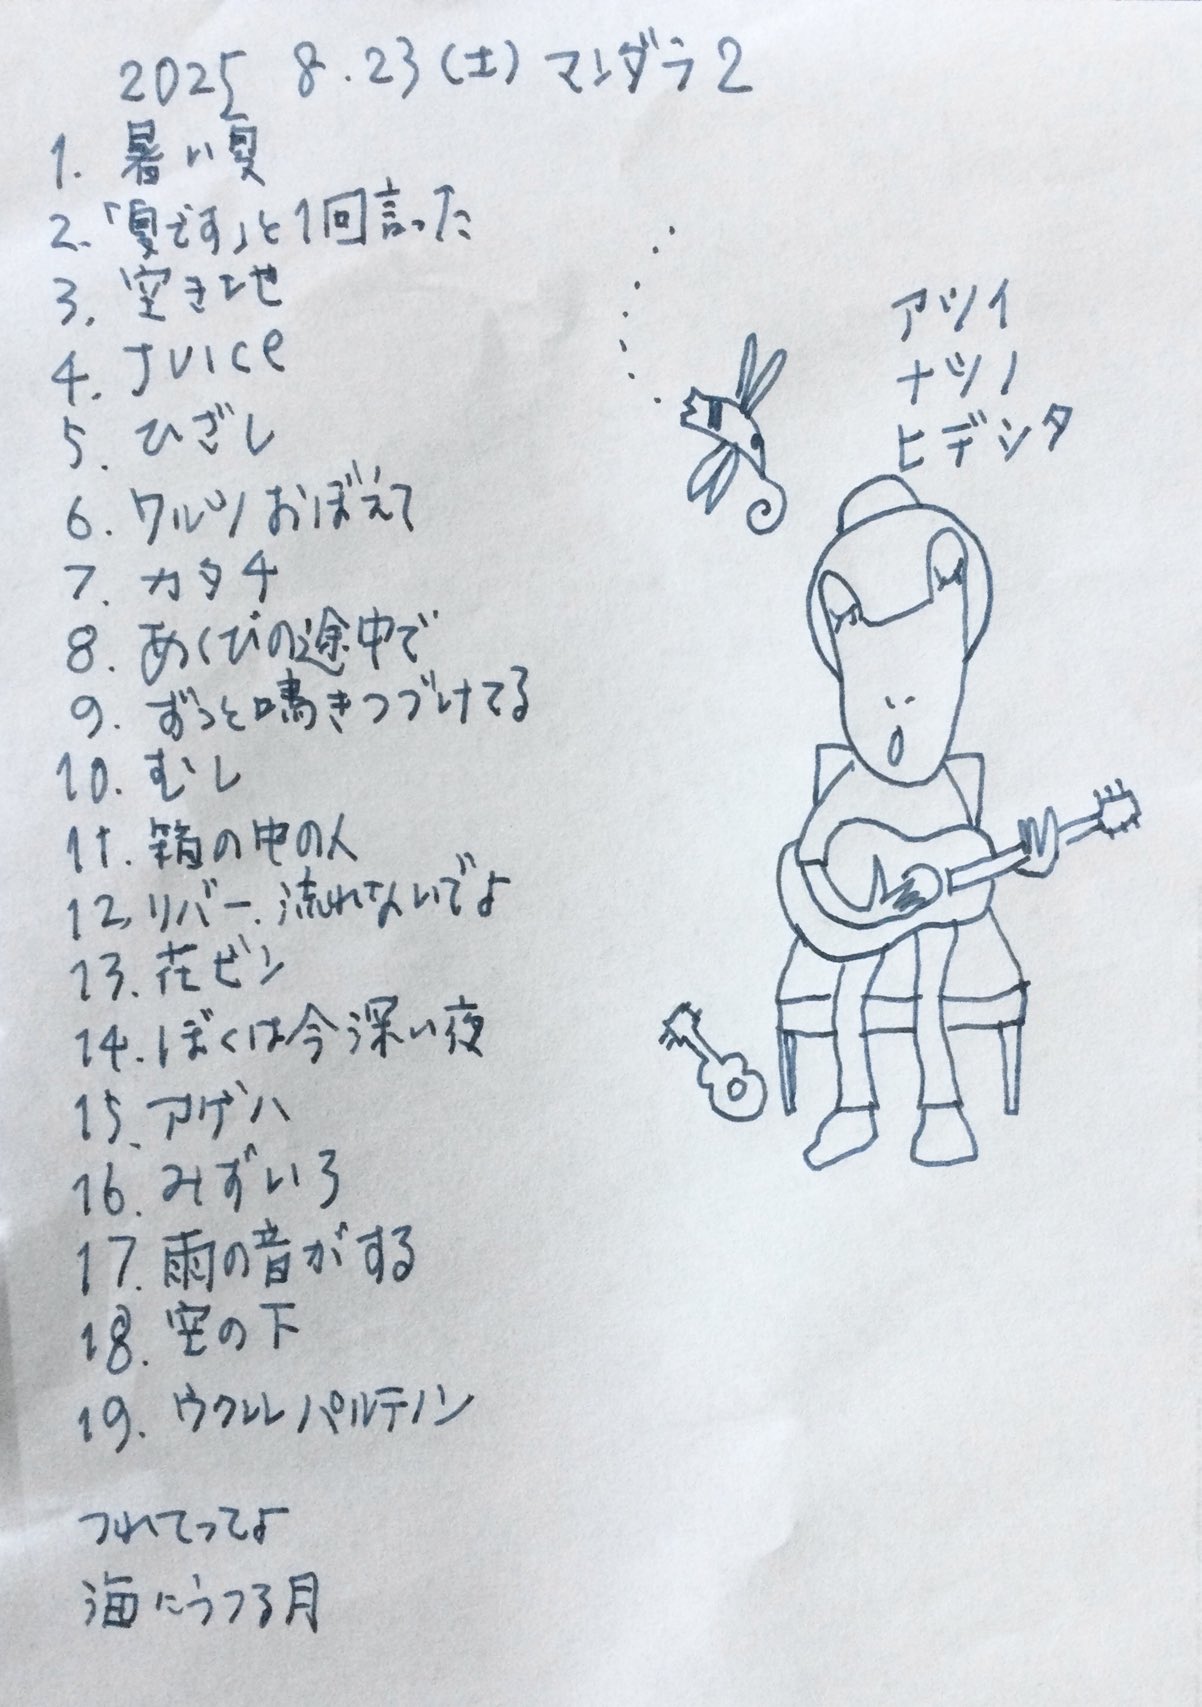 2025 8.23(土)マンダラ2
1. 暑い夏
2.「夏です」と1回言った
3. 空き地
4. Juice
5. ひざし
6. ワルツおぼえて
7. カタチ
8. あくびの途中で
9. ずっと鳴きつづけてる
10. むし
11. 箱の中の人
12. リバー、流れないでよ
13. 花ビン
14. ぼくは今深い夜
15. アゲハ
16. みずいろ
17. 雨の音がする
18. 空の下
19. ウクレレパルテノン
つれてってよ
海にうつる月
アツイ
ナツノ
ヒデシタ